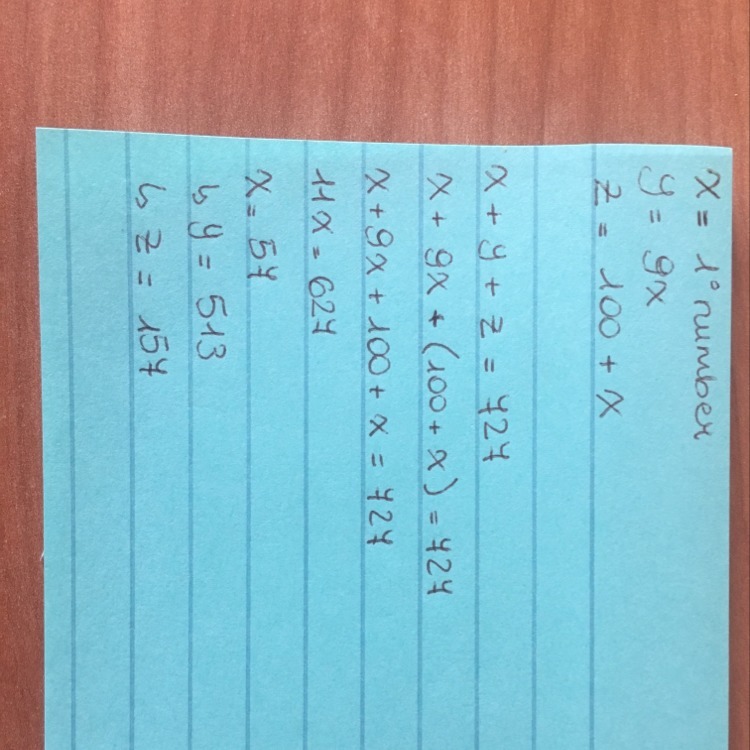 x = 1° number
y = 9x
z = 100 + x
x + y + z = 724
x + 9x + (100 + x) = 724
x + 9x + 100 + x = 724
11x = 624
x = 57
↳ y = 513
↳ z = 157